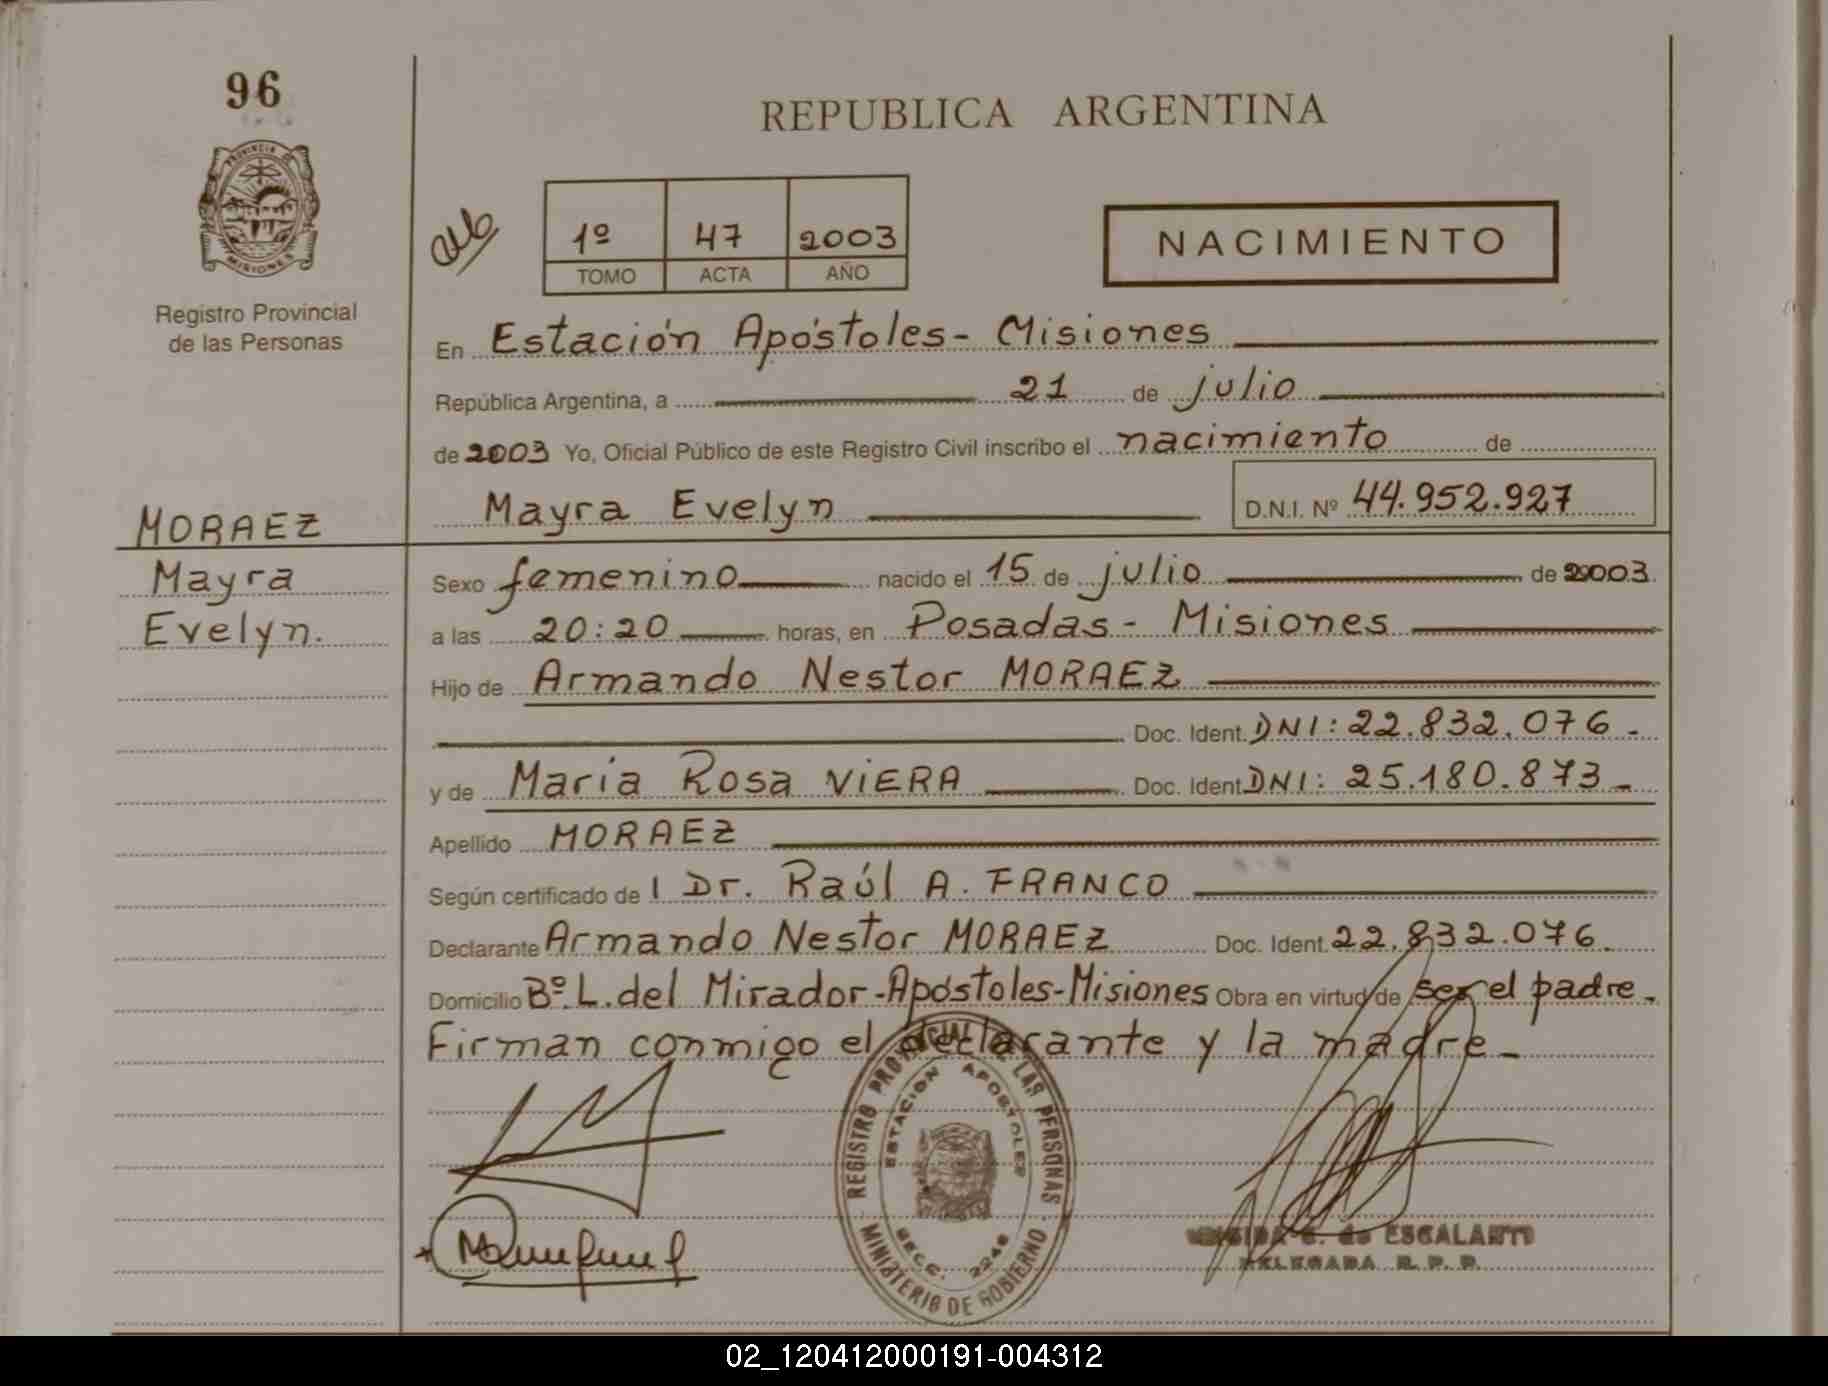 96
REPUBLICA ARGENTINA
PROVINCIA DE
MISIONES
1º 47 2003
TOMO ACTA AÑO
NACIMIENTO
Registro Provincial
de las Personas
En Estación Apóstoles - Misiones
República Argentina, a 21 de julio
de 2003 Yo, Oficial Público de este Registro Civil inscribo el nacimiento de
Mayra Evelyn D.N.I. Nº 44.952.927
MORAEZ
Mayra
Evelyn.
Sexo femenino nacido el 15 de julio de 2003
a las 20:20 horas, en Posadas - Misiones
Hijo de Armando Nestor MORAEZ
Doc. Ident. DNI: 22.832.076 -
y de María Rosa ViERA Doc. Ident. DNI: 25.180.873 -
Apellido MORAEZ
Según certificado de l Dr. Raúl A. FRANCO
Declarante Armando Nestor MORAEZ Doc. Ident. 22.832.076.
Domicilio Bº. L. del Mirador - Apóstoles - Misiones Obra en virtud de ser el padre.
Firman conmigo el declarante y la madre -
REGISTRO PROVINCIAL DE LAS PERSONAS
ESTACION APOSTOLES
SECC. 2248
MINISTERIO DE GOBIERNO
de ESCALANTE
DELEGADA R. P. P.
02_120412000191-004312